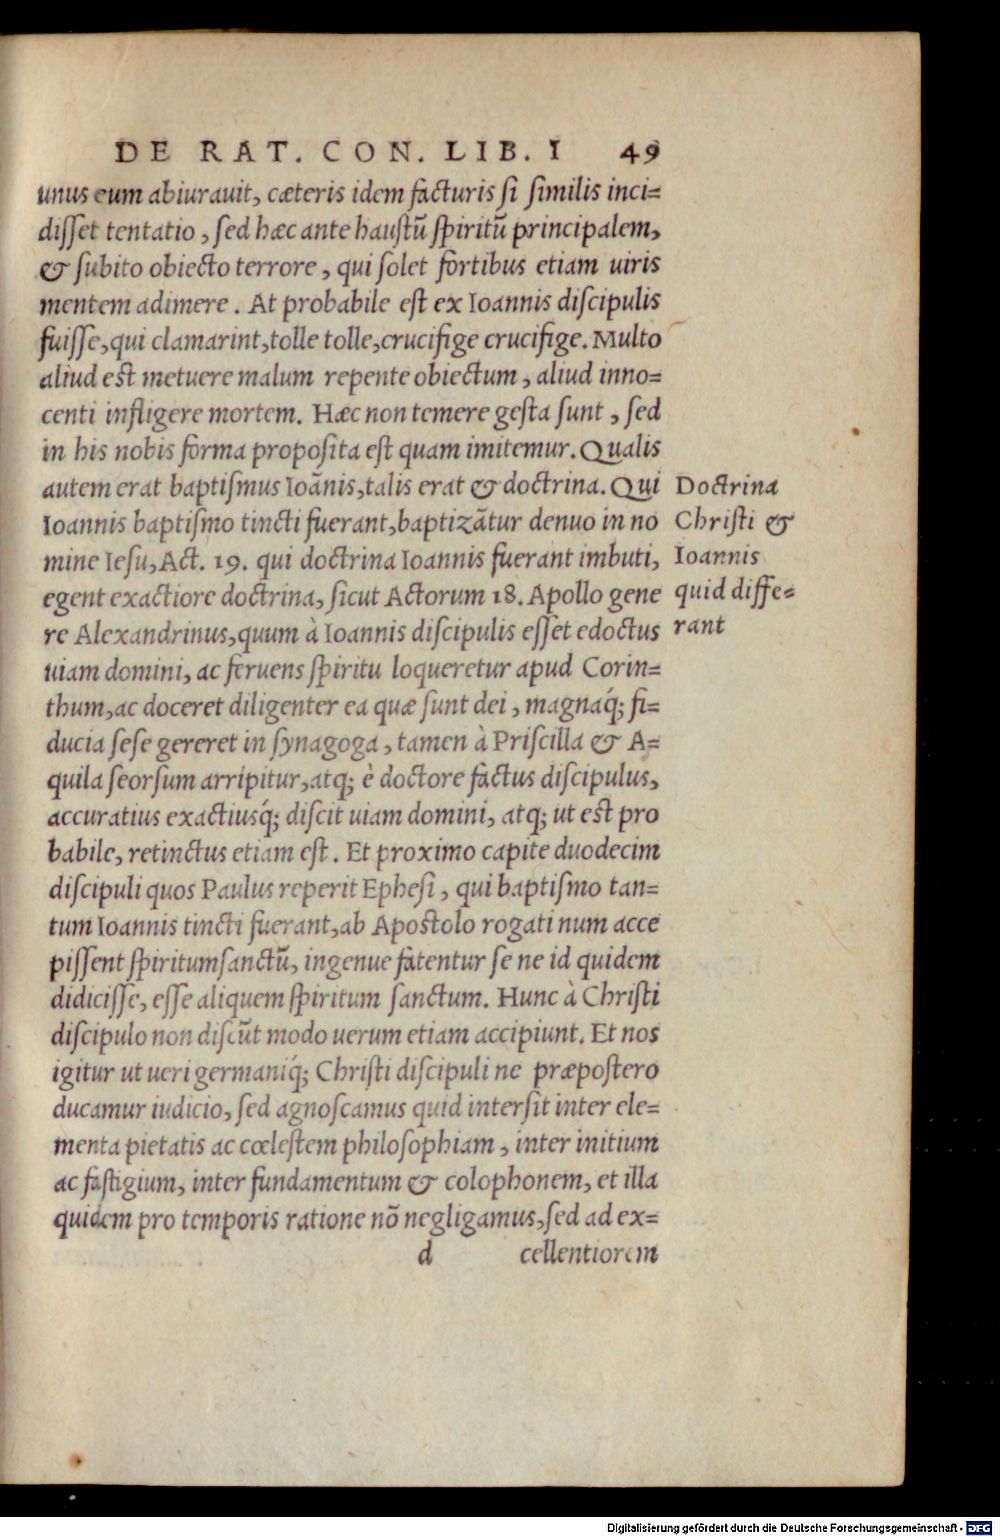 DE RAT. CON. LIB. I 49
unus eum abiurauit, cæteris idem facturis si similis inci=
disset tentatio, sed hæc ante haustũ spiritũ principalem,
& subito obiecto terrore, qui solet fortibus etiam uiris
mentem adimere. At probabile est ex Ioannis discipulis
fuisse, qui clamarint, tolle tolle, crucifige crucifige. Multo
aliud est metuere malum repente obiectum, aliud inno=
centi infligere mortem. Hæc non temere gesta sunt, sed
in his nobis forma proposita est quam imitemur. Qualis
autem erat baptismus Ioãnis, talis erat & doctrina. Qui
Ioannis baptismo tincti fuerant, baptizãtur denuo in no
mine Iesu, Act. 19. qui doctrina Ioannis fuerant imbuti,
egent exactiore doctrina, sicut Actorum 18. Apollo gene
re Alexandrinus, quum à Ioannis discipulis esset edoctus
uiam domini, ac feruens spiritu loqueretur apud Corin=
thum, ac doceret diligenter ea quæ sunt dei, magnaq́; fi=
ducia sese gereret in synagoga, tamen à Priscilla & A=
quila seorsum arripitur, atq; è doctore factus discipulus,
accuratius exactiusq́; discit uiam domini, atq; ut est pro
babile, retinctus etiam est. Et proximo capite duodecim
discipuli quos Paulus reperit Ephesi, qui baptismo tan=
tum Ioannis tincti fuerant, ab Apostolo rogati num acce
pissent spiritumsanctũ, ingenue fatentur se ne id quidem
didicisse, esse aliquem spiritum sanctum. Hunc à Christi
discipulo non discũt modo uerum etiam accipiunt. Et nos
igitur ut ueri germaniq́; Christi discipuli ne præpostero
ducamur iudicio, sed agnoscamus quid intersit inter ele=
menta pietatis ac cœlestem philosophiam, inter initium
ac fastigium, inter fundamentum & colophonem, et illa
quidem pro temporis ratione nõ negligamus, sed ad ex=
d cellentiorem
Doctrina
Christi &
Ioannis
quid diffe=
rant
Digitalisierung gefördert durch die Deutsche Forschungsgemeinschaft - DFG